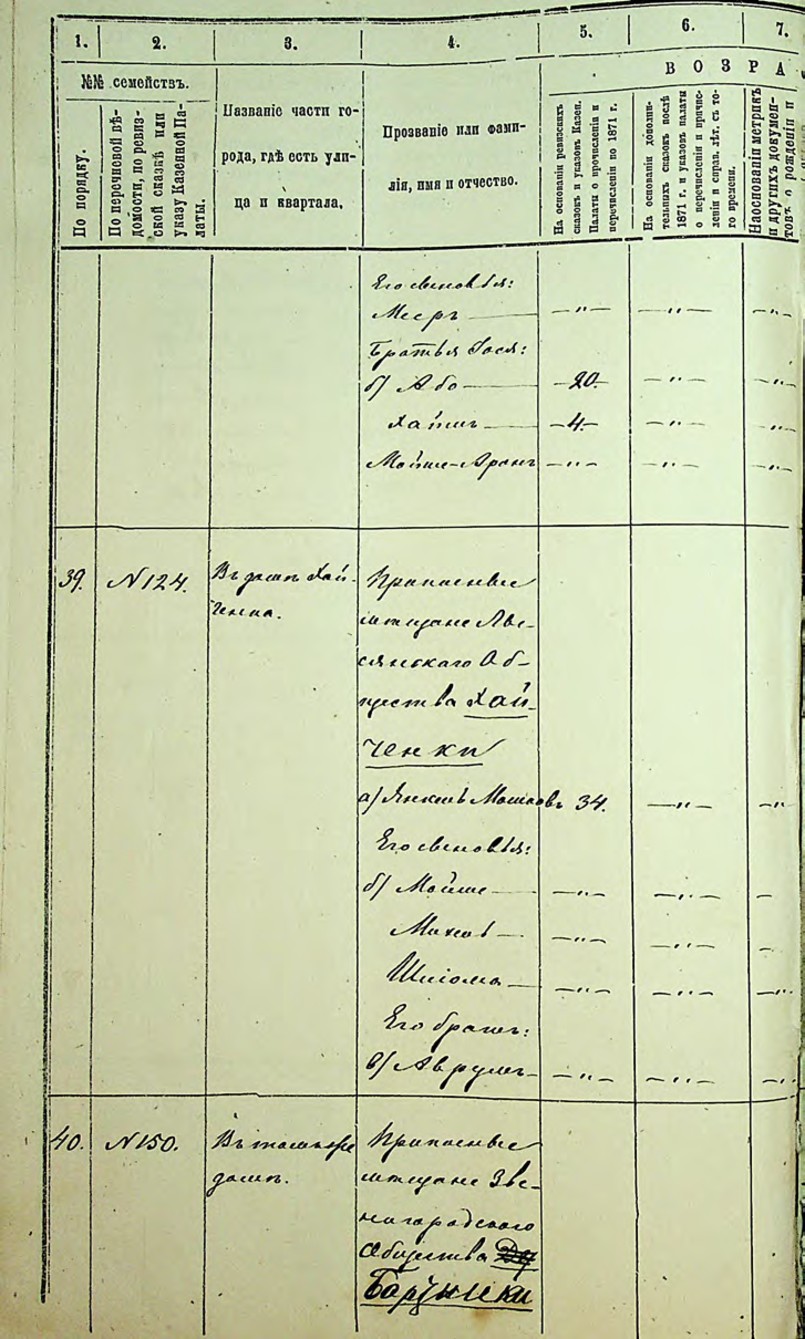 1. 2. 3. 4. 5. 6. 7.
№№ семействъ.
В О З Р А
По порядку.
По перечневой вѣ-
домости, по ревиз-
ской сказкѣ или
указу Казенной Па-
латы.
Названіе части го-
рода, гдѣ есть ули-
ца и квартала.
Прозваніе или фами-
лія, имя и отчество.
На основаніи ревизскихъ
сказокъ и указовъ Казен.
Палаты о причисленіи и
перечисленіи по 1871 г.
На основаніи дополни-
тельныхъ сказокъ послѣ
1871 г. и указовъ палаты
о перечисленіи и причис-
леніи и справ. лѣт. съ то-
го времени.
На основаніи метрикъ
и другихъ докумен-
товъ о рожденіи и
Его сыновья:
Мееръ — „ — — „ — — „ —
Братья
б/ Або — 20. — „ — — „ —
Хаимъ — 4. — „ — — „ —
Мойше-Аронъ — „ — — „ — — „ —
39. №124. Въ домѣ Хай-
ченка.
Приписные
мѣщане
сянскаго Об-
щества Хай-
ченки
а/ Янкель Мошковъ 34. — „ — — „ —
Его сыновья:
б/ Мойше — „ — — „ — —
— „ — — „ — —
Шлiома — „ — — „ — — „ —
Его братъ:
в/ Аврумъ — „ — — „ — — „ —
40. №150. Въ
домѣ.
Приписные
мѣщане Зве-
нигородскаго
Общества